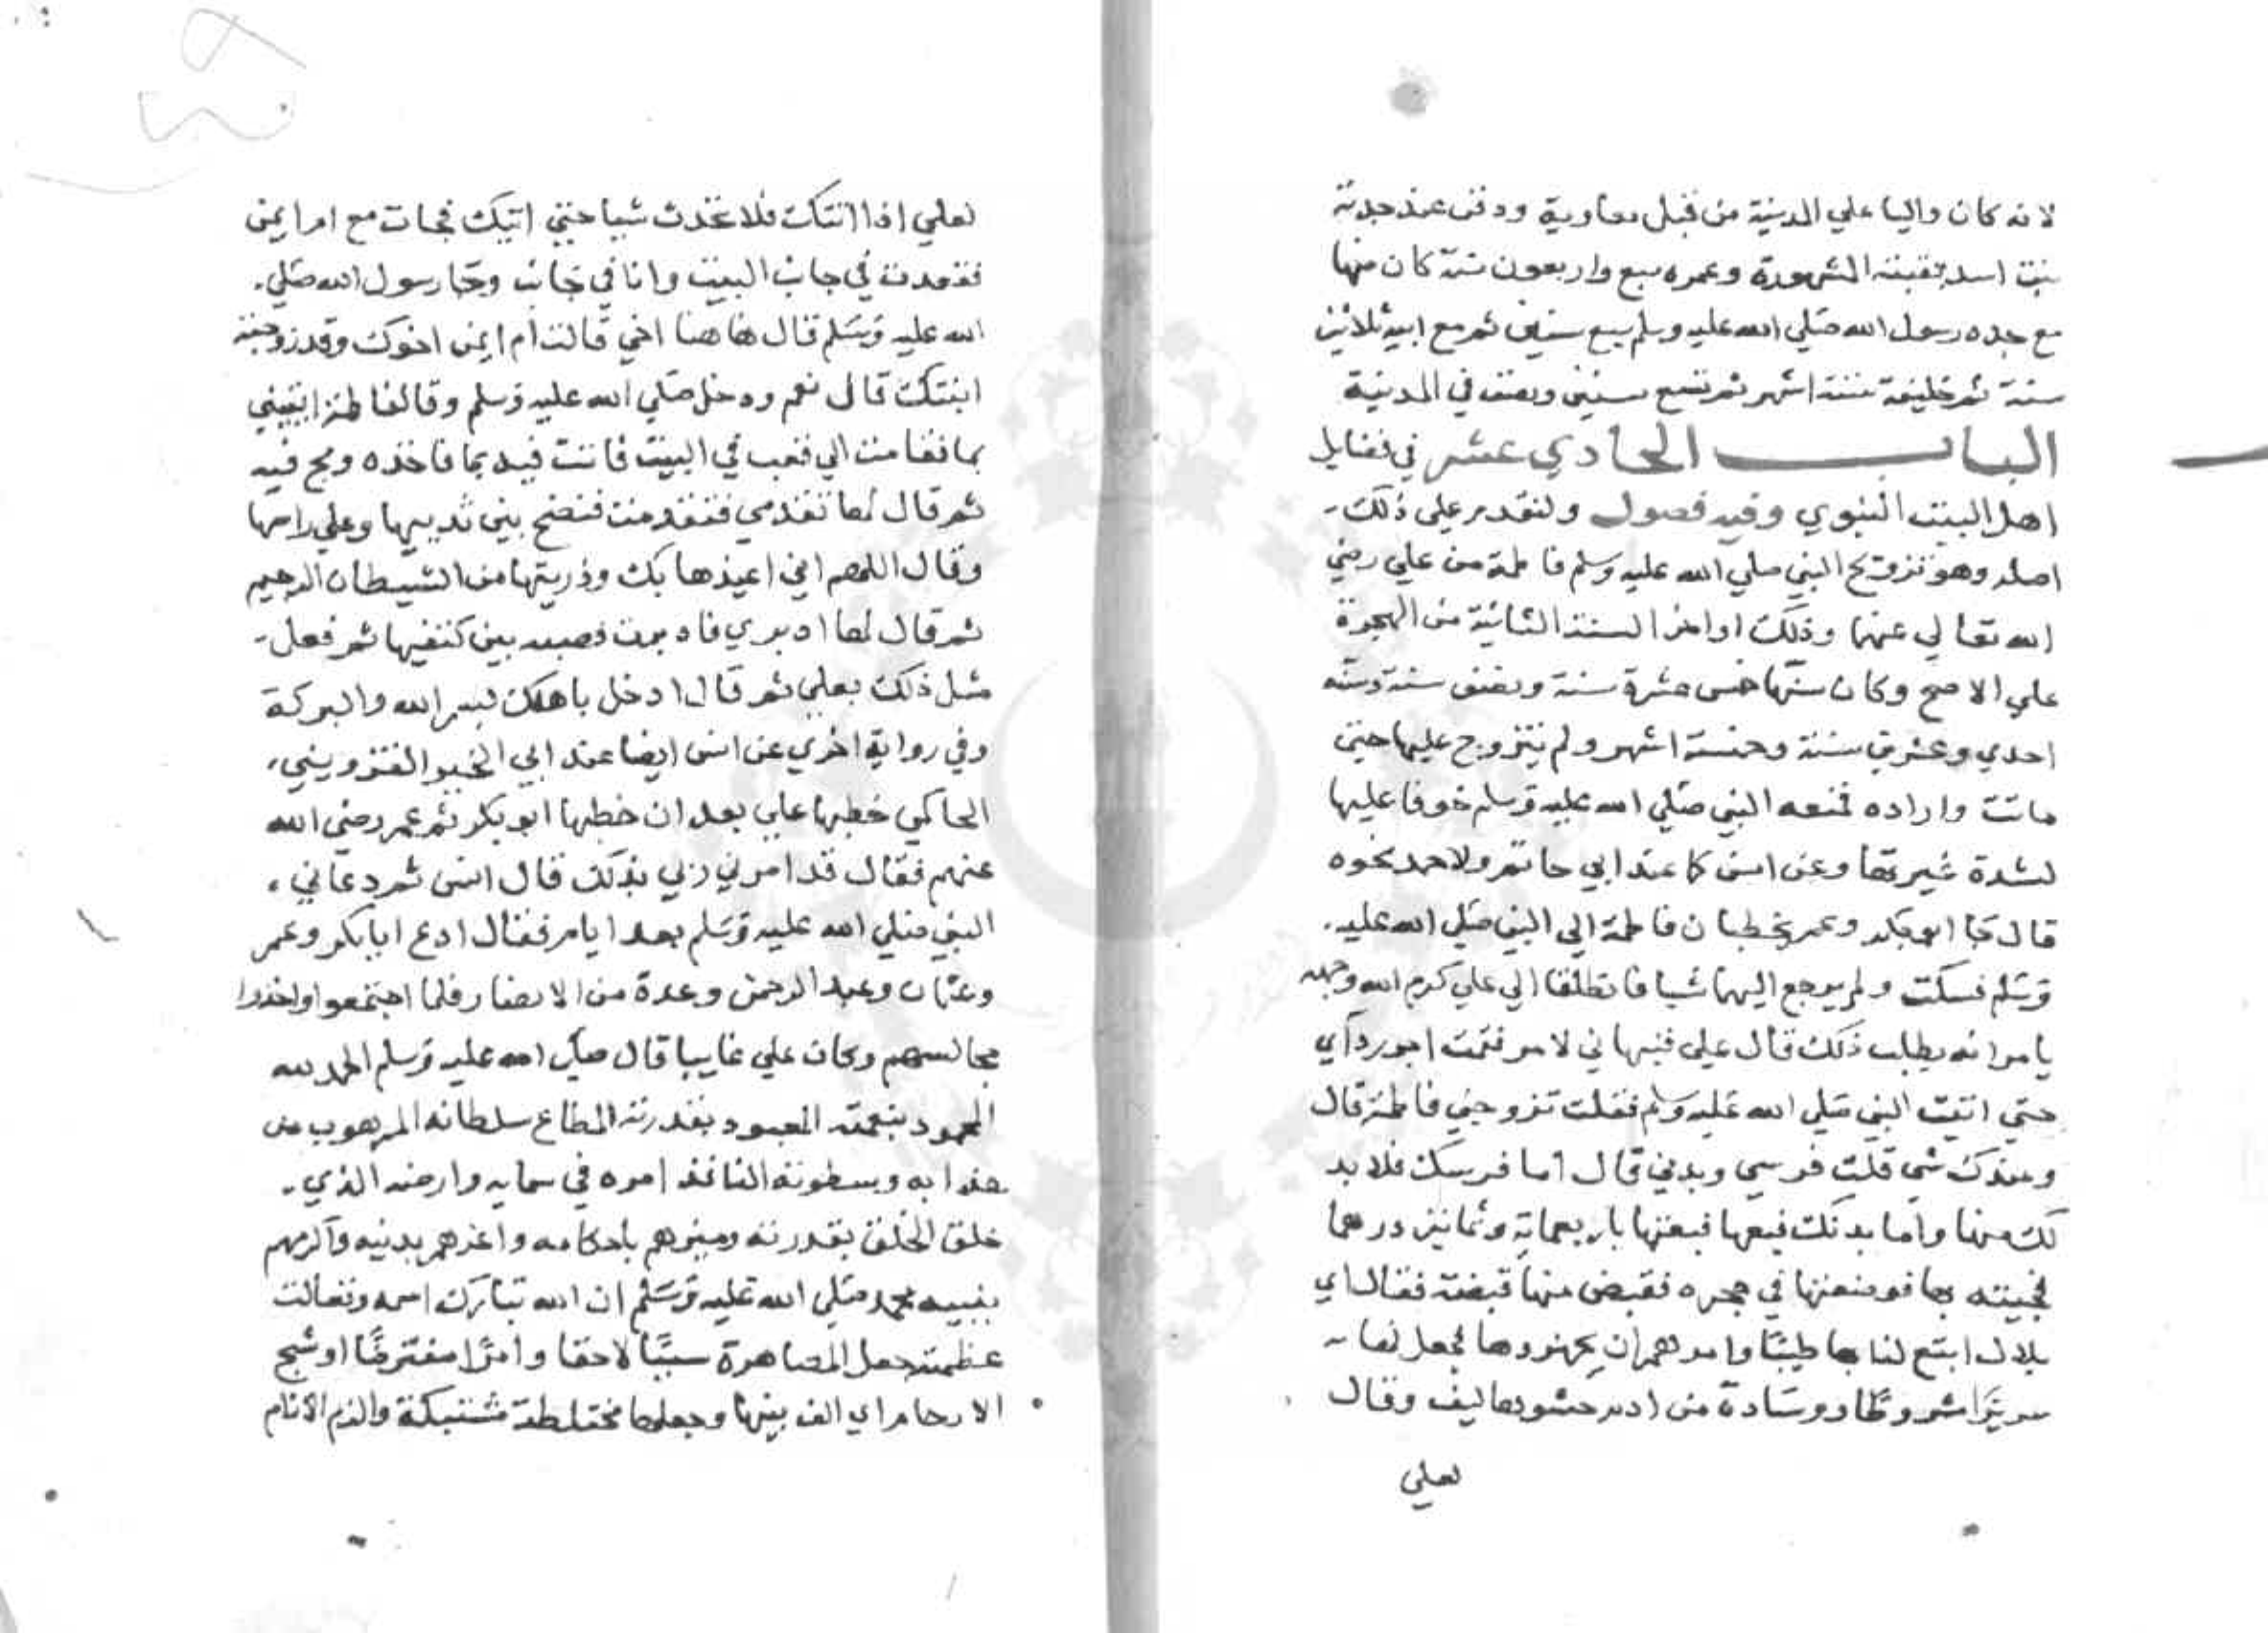 لانه كان واليا علي المدينة من قبل معاوية ودفن عند جدته
بنت اسد بقبته المشهورة وعمره سبع واربعون سنة كان منها
مع جده رسول الله صلي الله عليه وسلم سبع سنين ثم مع ابيه ثلاثين
سنة ثم خليفة ستة اشهر ثم تسع سنين ونصف في المدينة
الباب الحادي عشر في فضايل
اهل البيت النبوي وفيه فصول ولنقدم علي ذلك
اصله وهو تزويج النبي صلي الله عليه وسلم فاطمة من علي رضي
الله تعالي عنهما وذلك اواخر السنة الثانية من الهجرة
علي الاصح وكان سنها خمس عشرة سنة ونصف سنة وسنه
احدي وعشرين سنة وخمسة اشهر ولم يتزوج عليها حتي
ماتت واراده فمنعه النبي صلي الله عليه وسلم خوفا عليها
لشدة غيرتها وعن انس كما عند ابي حاتم ولاحمد نحوه
قال جا ابو بكر وعمر يخطبان فاطمة الي النبي صلي الله عليه
وسلم فسكت ولم يرجع اليهما شيا فانطلقا الي علي كرم الله وجهه
يامرانه يطلب ذلك قال علي فنبهاني لامر فقمت اجر ردآي
حتي اتيت النبي صلي الله عليه وسلم فقلت تزوجني فاطمة قال
وعندك شي قلت فرسي وبدني قال اما فرسك فلا بد
لك منها واما بدنك فبعها فبعتها باربعماية وثمانين درهما
فجيته بها فوضعتها في حجره فقبض منها قبضة فقال اي
بلال ابتع لنا بها طيبا وامرهم ان يجهزوها فجعل لها
سريرا شروطا ووسادة من ادم حشوها ليف وقال
لعلي
لعلي اذا اتتك فلا تحدث شيا حتي اتيك فجات مع ام ايمن
فقعدت في جانب البيت وانا في جانب وجا رسول الله صلي
الله عليه وسلم قال هاهنا اخي قالت ام ايمن اخوك وقد زوجته
ابنتك قال نعم ودخل صلي الله عليه وسلم وقال لفاطمة ايتيني
بما فقامت الي قعب في البيت فاتت فيه بما فاخذه ومج فيه
ثم قال لها تقدمي فتقدمت فنضح بين ثدييها وعلي راسها
وقال اللهم اني اعيذها بك وذريتها من الشيطان الرجيم
ثم قال لها ادبري فادبرت فصبه بين كتفيها ثم فعل
مثل ذلك بعلي ثم قال ادخل باهلك بسم الله والبركة
وفي رواية اخري عن انس ايضا عند ابي الخير القزويني
الحاكمي خطبها علي بعد ان خطبها ابو بكر ثم عمر رضي الله
عنهم فقال قد امرني ربي بذلك قال انس ثم دعاني
النبي صلي الله عليه وسلم بعد ايام فقال ادع ابا بكر وعمر
وعثمان وعبد الرحمن وعدة من الانصار فلما اجتمعوا واخذوا
مجالسهم وكان علي غايبا قال صلي الله عليه وسلم الحمد لله
المحمود بنعمته المعبود بقدرته المطاع سلطانه المرهوب من
عذابه وسطوته النافذ امره في سمايه وارضه الذي
خلق الخلق بقدرته وميزهم باحكامه واعزهم بدينه واكرمهم
بنبيه محمد صلي الله عليه وسلم ان الله تبارك اسمه وتعالت
عظمته جعل المصاهرة سببا لاحقا وامرا مفترضا اوشج
الارحام اي الف بينها وجعلها مختلطة مشتبكة والزم الانام